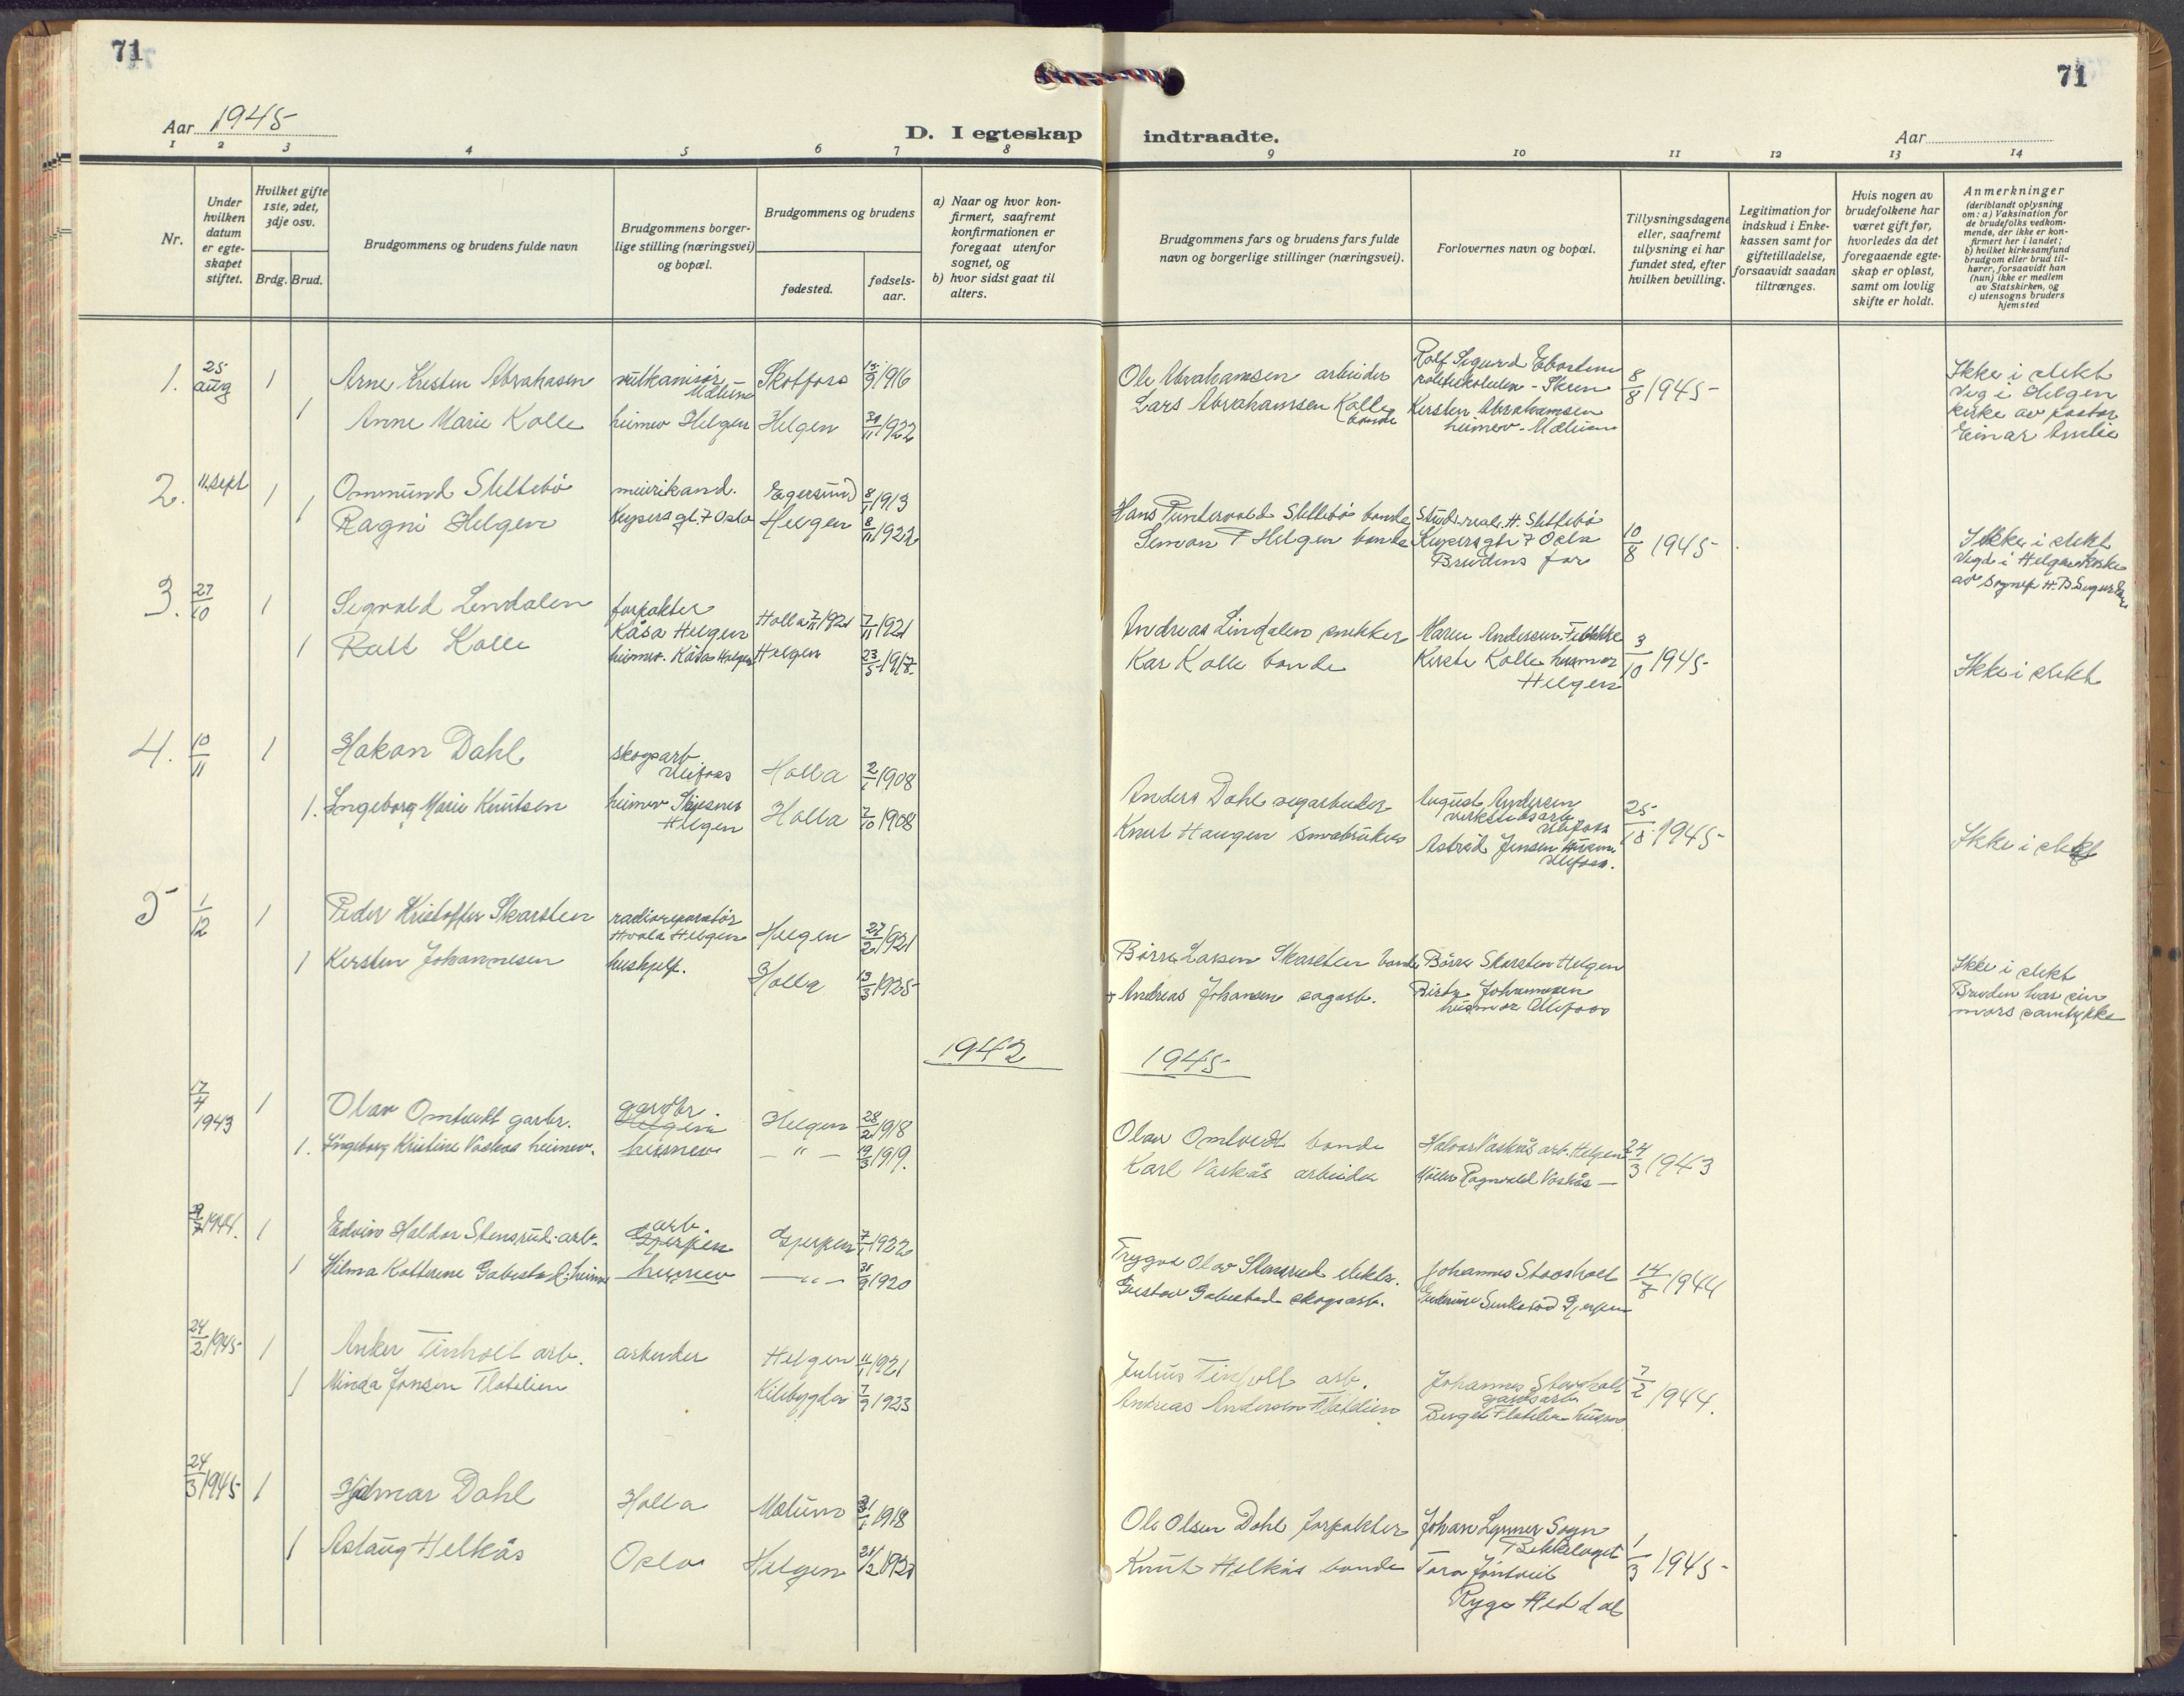 71
71
Aar 1945
D. I egteskap indtraadte.
Aar
1 2 3 4 5 6 7 8 9 10 11 12 13 14
Nr.
Under hvilken datum er egte-skapet stiftet.
Hvilket gifte 1ste, 2det, 3dje osv.
Brdg. Brud.
Brudgommens og brudens fulde navn
Brudgommens borger-lige stilling (næringsvei) og bopæl.
Brudgommens og brudens
fødested.
fødsels-aar.
a) Naar og hvor kon-firmert, saafremt konfirmationen er foregaat utenfor sognet, og
b) hvor sidst gaat til alters.
Brudgommens fars og brudens fars fulde navn og borgerlige stillinger (næringsvei).
Forlovernes navn og bopæl.
Tillysningsdagene eller, saafremt tillysning ei har fundet sted, efter hvilken bevilling.
Legitimation for indskud i Enke-kassen samt for giftetilladelse, forsaavidt saadan tiltrænges.
Hvis nogen av brudefolkene har været gift før, hvorledes da det foregaaende egte-skap er opløst, samt om lovlig skifte er holdt.
Anmerkninger (deriblandt oplysning om: a) Vaksination for de brudefolks vedkom-mende, der ikke er kon-firmert her i landet; b) hvilket kirkesamfund brudgom eller brud til-hører, forsaavidt han (hun) ikke er medlem av Statskirken, og c) utensogns bruders hjemsted
1. 25 aug 1 Arne Kristen Abrahasen vulkanisør Melum Skotfoss 1916 Ole Abrahamsen arbeider Rolf Sigurd - Skien 8/8 1945 Ikke i slekt
1 Anne Marie Kolle heimev Helgen Helgen 30/11 1922 Lars Abrahamsen Kolle bonde Kersten Abrahamsen heimev - Melum Vig i Helgen kirke av pastor Einar Amlie
2. 11. sept 1 Ommund Slettebö meierikand. Egersund 8/1 1913 Hans Slettebö bonde Stud. real. H. Slettebö 10/8 1945 Ikke i slekt
1 Ragni Helgen Keysers gt. 7 Oslo Helgen 8/11 1922 Simon T Helgen bonde Keysers gt. 7 Oslo Brudens far Vigd i Helgen kirke av Sognepr. H. B.
3. 27/10 1 Sigvald Lindalen forpakter Kåsa Helgen Holla 7/11 1921 7/11 1921 Andreas Lindalen snekker Maren Andersen 3/10 1945
1 Kolle heimev. Kåsa Helgen Helgen 23/5 1917 Kar Kolle bonde Kirste Kolle husmor Helgen Ikke i slekt
4. 10/11 1 Hakon Dahl skogsarb. Ulefoss Holla 2/1 1908 Anders Dahl vegarbeider August Andersen verkstedsarb Ulefoss 25/10 1945
1. Ingeborg Marie Knutsen heimev Helgen Holla 7/10 1908 Knut Haugen småbruker Astrid Jensen Husm. Ulefoss. Ikke i slekt
5 1/12 1 Peder Kristoffer Skarsten radioreparatör Hvala Helgen Helgen 27/2 1921 Börre Larsen Skarsten bonde Börre Skarsten Helgen Ikke i slekt
1 Kersten Johannesen hushjelp. Holla 13/3 1925 + Andreas Johansen sagarb. Johannesen husmor Ulefoss Bruden har sin mors samtykke
1942 1945
17/4 1943 1 Olav Omtvedt garbr. gardbr. Helgen Helgen 28/2 1918 Olav Omtvedt bonde Halvor Vaskås arb. Helgen 24/3 1943
1. Ingeborg Kristine Vaskås heimev. heimev — " — 19/3 1919. Karl Vaskås arbeider Ragnvald Vaskås —
1944. 1 Edvin Haldor Stensrud. arb. arb. Gjerpen Gjerpen 7/1 1922 Trygve Olav Stensrud elektr. Johannes Stoosholt 14/7 1944
1 Hilma Katterine heimev — " — 30/9 1920 Gustav skogsarb. Gjerpen
24/2 1945 1 Anker Tinholt arb. arbeider Helgen 11/1 1921 Julius Tinholt arb. Johannes Stoosholt gardsarb. 7/2 1944.
1 Minda Jonsen Flatelien Kilebygden 7/9 1923 Andreas Andersen Flatelien Flatelien husmor
24/3 1945 1 Hjalmar Dahl Holla Melum 1918 Ole Olsen Dahl forpakter Johan Lynner Sogn Bekkelaget 1/3 1945
1 Astaug Helkås Oslo Helgen 1920 Knut Helkås bonde Tora Jöntveit Ryge Heddal